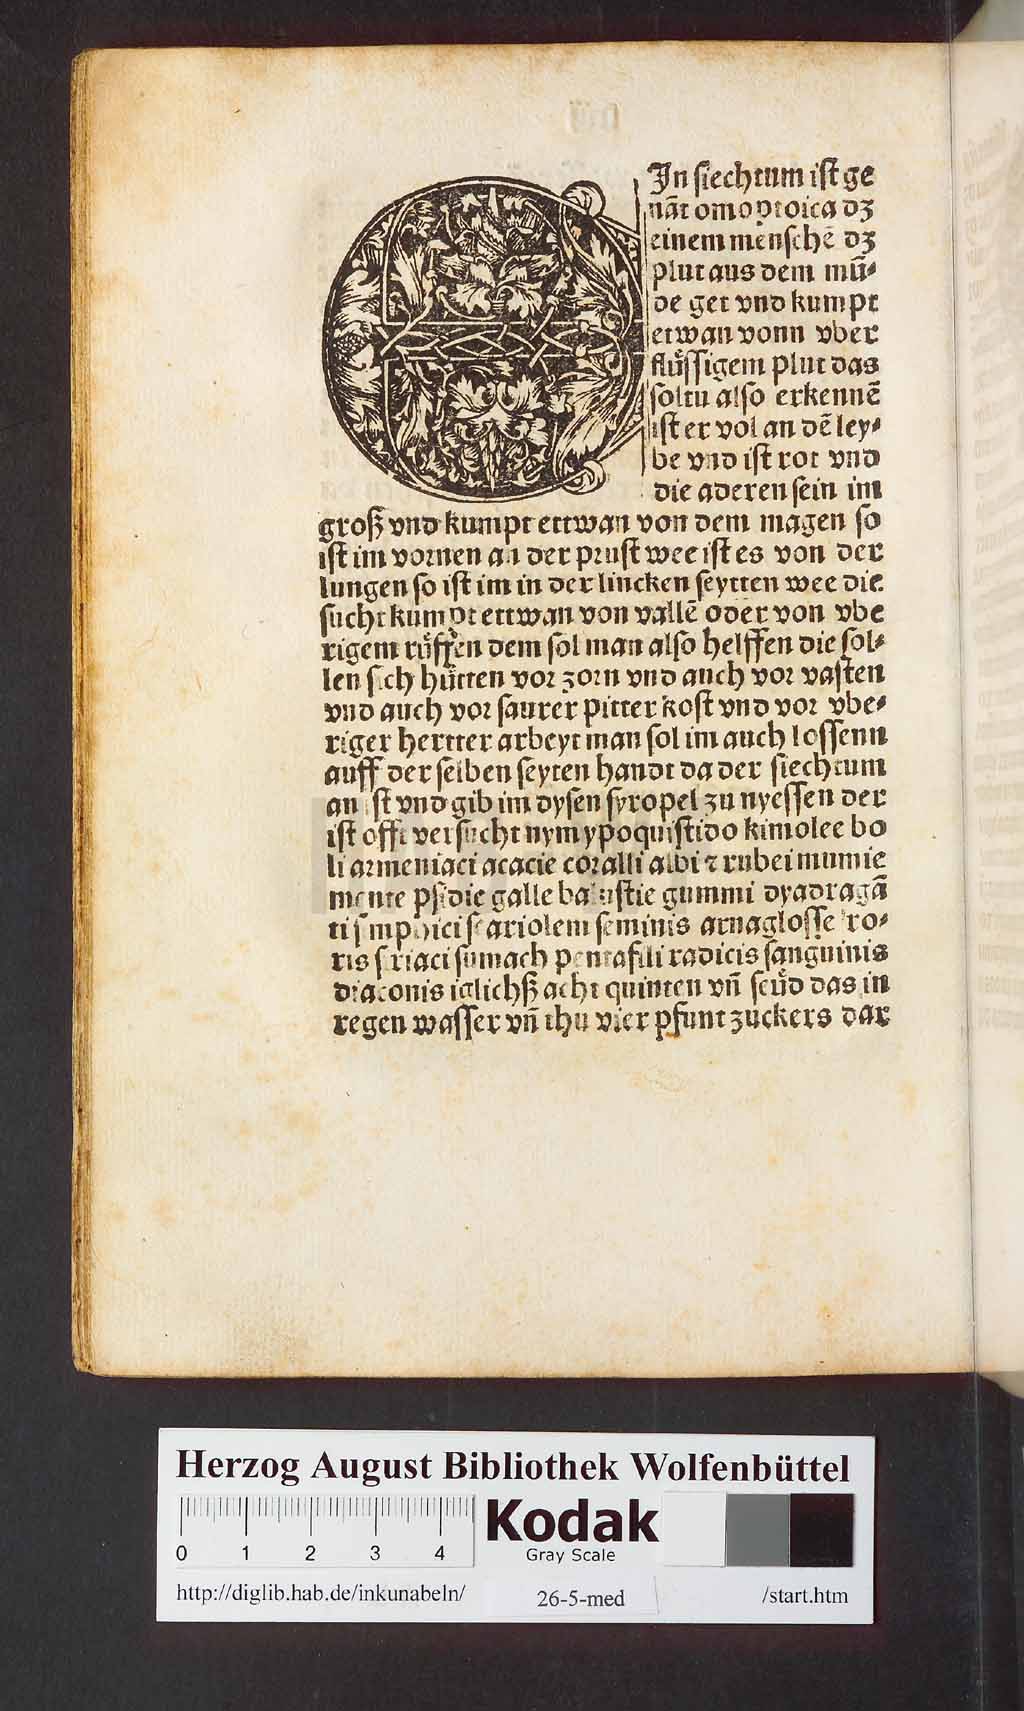 EJn siechtum ist ge
nāt omoptoica dʒ
einem menschē dʒ
plut aus dem mū⸗
de get vnd kumpt
etwan vonn vber
flüssigem plut das
soltu also erkennē
ist er vol an dē ley⸗
be vnd ist rot vnd
die aderen sein im
groß vnd kumpt ettwan von dem magen so
ist im vornen an der prust wee ist es von der
lungen so ist im in der lincken seytten wee die
sucht kumpt ettwan von vallē oder von vbe
rigem rüffen dem sol man also helffen die sol⸗
len sich hütten vor zorn vnd auch vor vasten
vnd auch vor saurer pitter kost vnd vor vbe⸗
riger hertter arbeyt man sol im auch lossenn
auff der selben seyten handt da der siechtum
an ist vnd gib im dysen syropel zu nyessen der
ist offt versucht nym ypoquistido kimolee bo
li armeniaci acacie coralli albi ⁊ rubei mumie
mente psidie galle balustie gummi dyadragā
ti seariolem seminis arnaglosse ro⸗
ris siriaci sumach pentafili radicis sanguinis
draconis iglichß acht quinten vn̄ seüd das in
regen wasser vn̄ thu vier pfunt zuckers dar
Herzog August Bibliothek Wolfenbüttel
0 1 2 3 4
Kodak
Gray Scale
http://diglib.hab.de/inkunabeln/
26-5-med
/start.htm